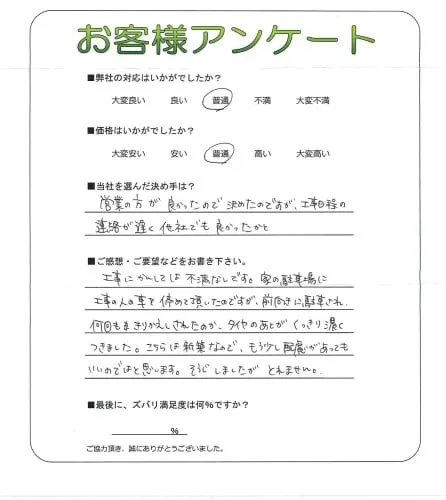 お客様アンケート
■弊社の対応はいかがでしたか？
大変良い 良い 普通 不満 大変不満
■価格はいかがでしたか？
大変安い 安い 普通 高い 大変高い
■当社を選んだ決め手は？
営業の方が良かったので決めたのですが、工事日程の
連絡が遅く他社でも良かったかと
■ご感想・ご要望などをお書き下さい。
工事にかんしては不満なしです。家の駐車場に
工事の人の車を停めて頂いたのですが、前向きに駐車され、
何回もきりかえしされたのか、タイヤのあとがくっきり濃く
つきました。こちらは新築なので、もう少し配慮があっても
いいのではと思します。そうじしましたがとれません。
■最後に、ズバリ満足度は何%ですか？
%
ご協力頂き、誠にありがとうございました。